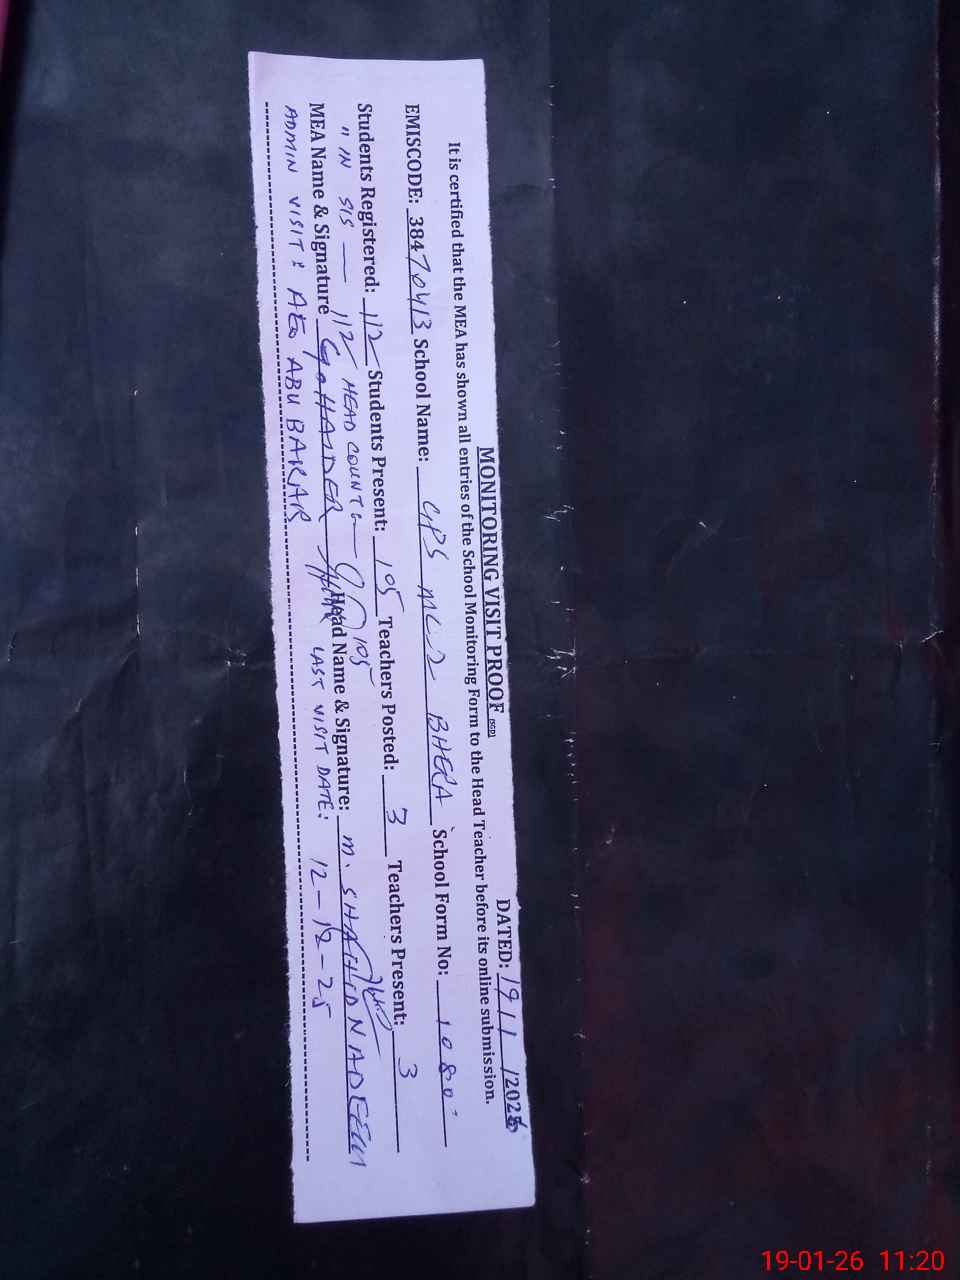 MONITORING VISIT PROOF (SGD)
DATED: 19/1/2026
It is certified that the MEA has shown all entries of the School Monitoring Form to the Head Teacher before its online submission.
EMISCODE: 38470413 School Name: GPS MC-2 BHERA School Form No: 1080
Students Registered: 112 Students Present: 105 Teachers Posted: 3 Teachers Present: 3
" IN SIS — 112 HEAD COUNT 105
MEA Name & Signature HAIDER Head Name & Signature: M. SHAHID NADEEM
ADMIN VISIT: AEO ABU BAKAR LAST VISIT DATE: 12-12-25
19-01-26 11:20